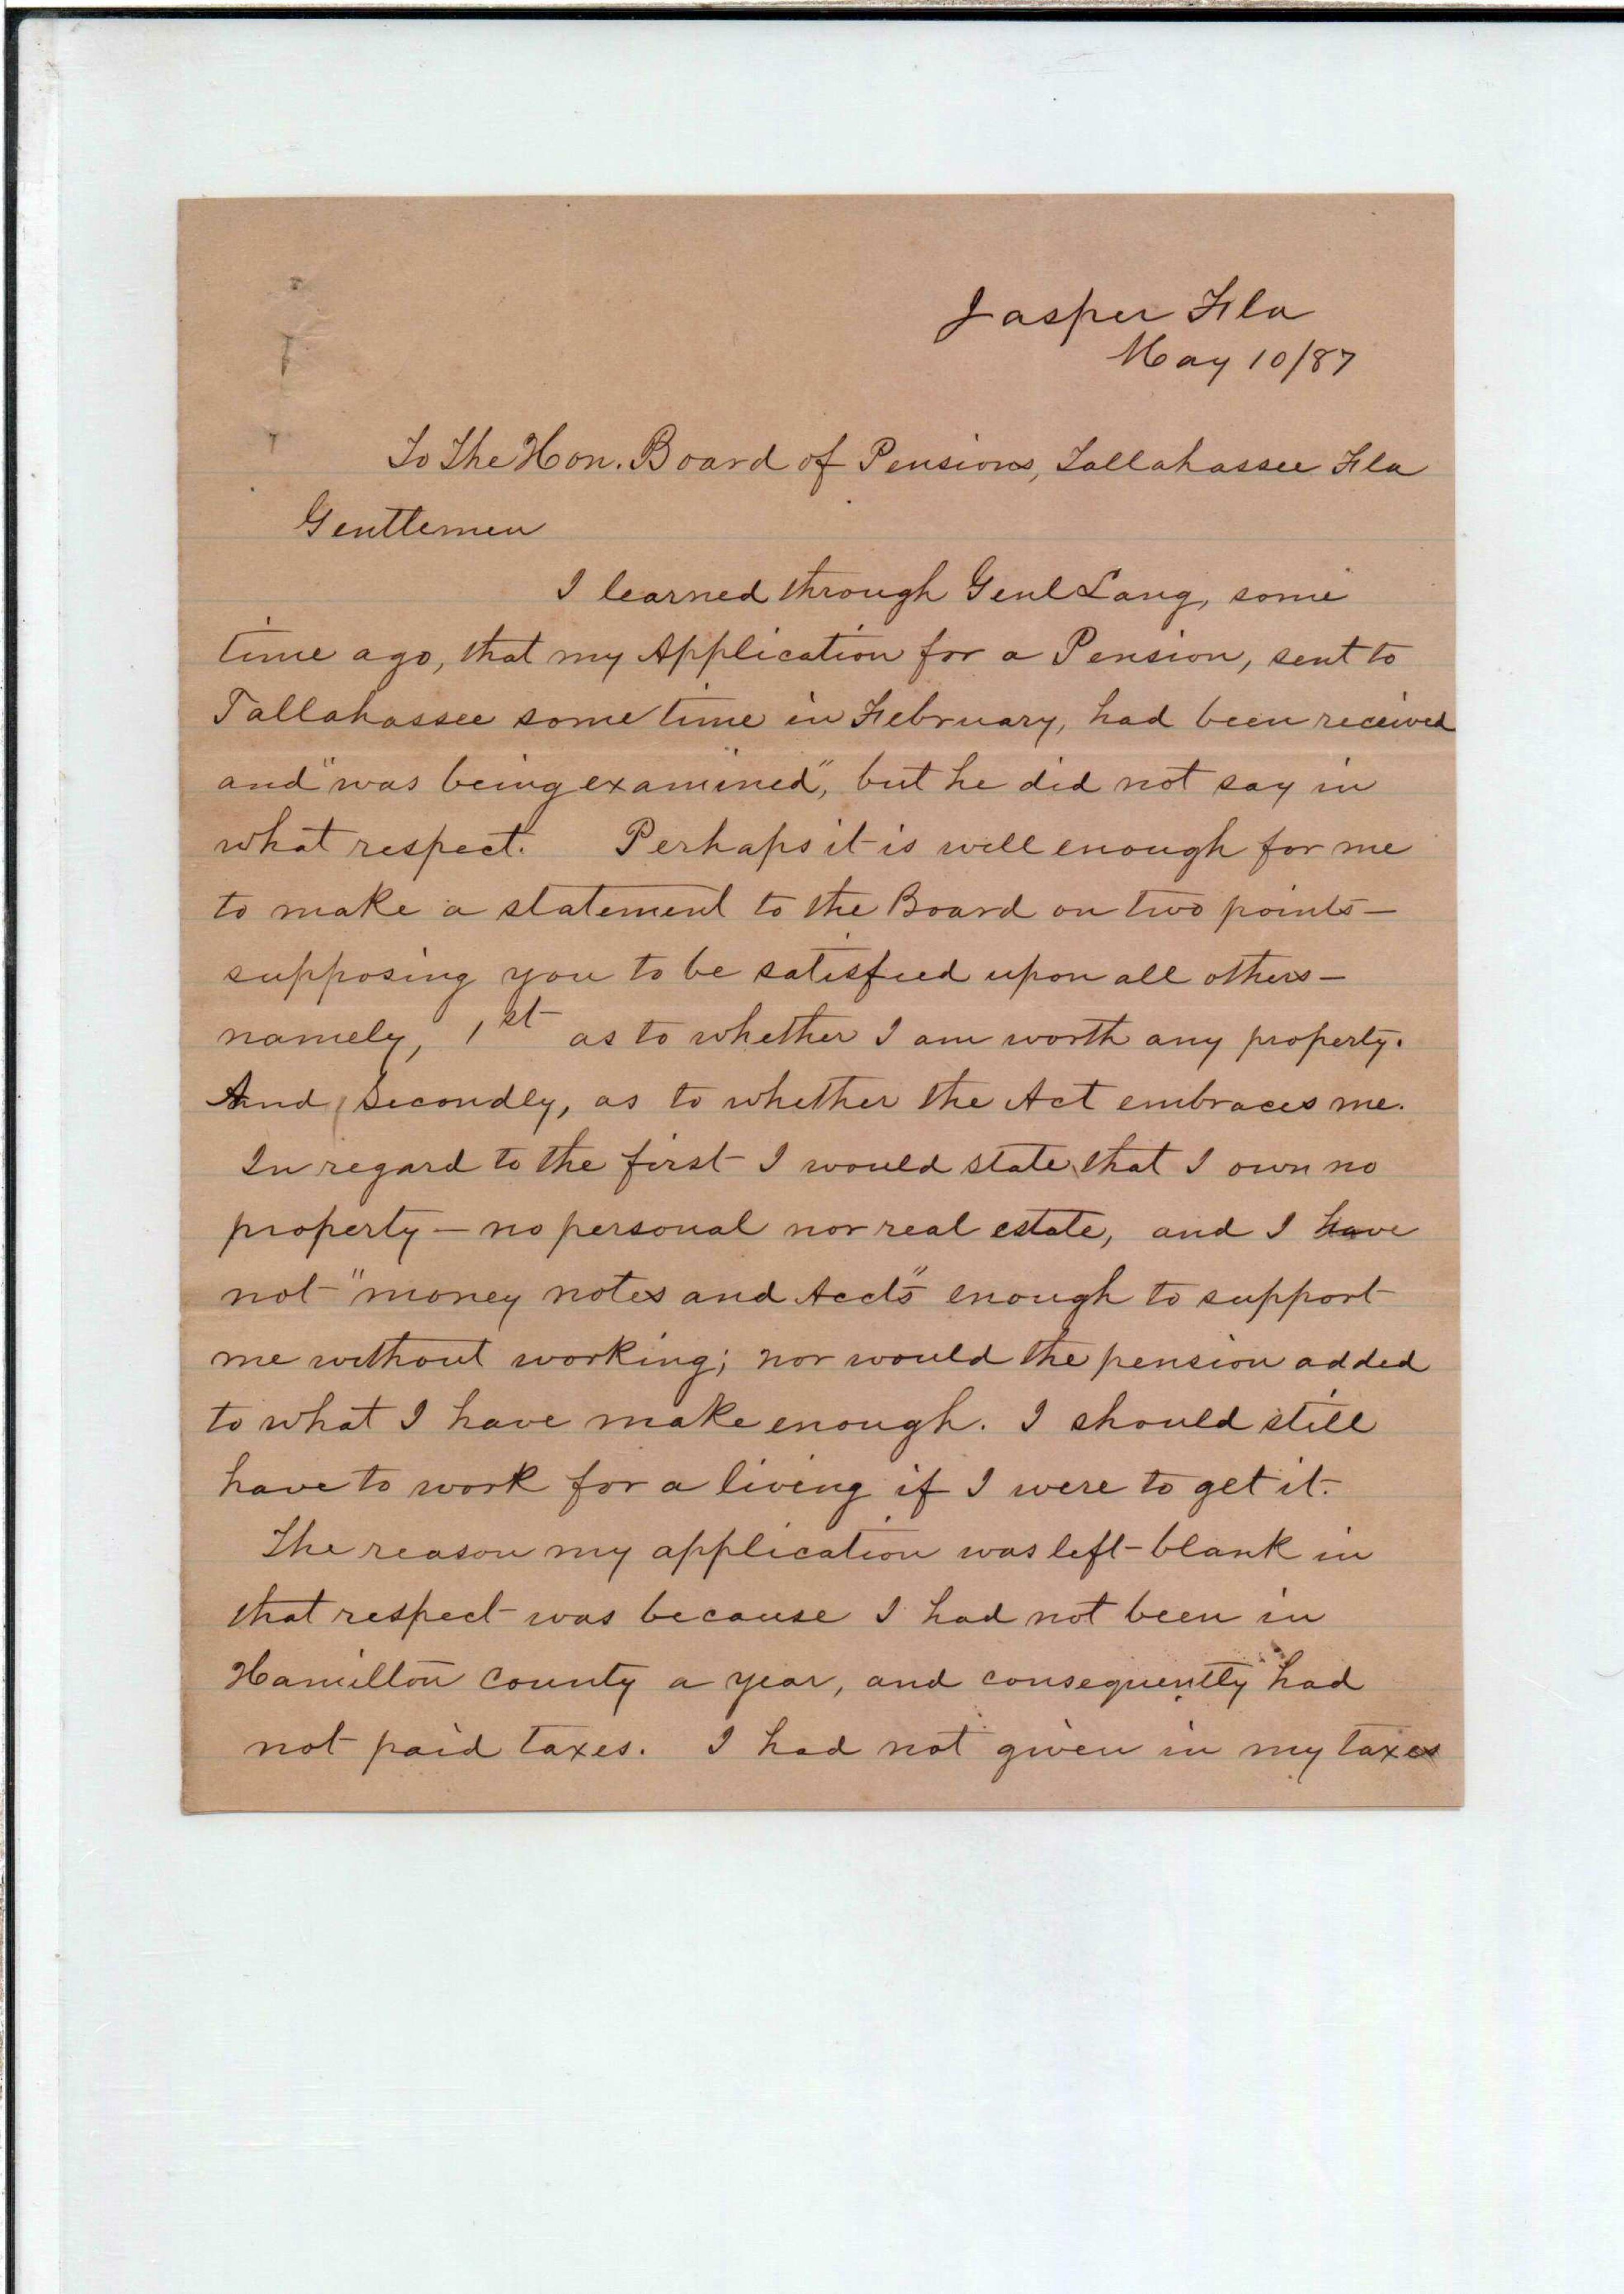 Jasper Fla
May 10/87
To The Hon. Board of Pensions, Tallahassee Fla
Gentlemen
I learned through Genl Lang, some
time ago, that my Application for a Pension, sent to
Tallahassee some time in February, had been received
and "was being examined", but he did not say in
what respect. Perhaps it is well enough for me
to make a statement to the Board on two points—
supposing you to be satisfied upon all others—
namely, 1st as to whether I am worth any property.
And Secondly, as to whether the Act embraces me.
In regard to the first I would state that I own no
property — no personal nor real estate, and I have
not "money notes and Accts" enough to support
me without working; nor would the pension added
to what I have make enough. I should still
have to work for a living if I were to get it.
The reason my application was left blank in
that respect was because I had not been in
Hamilton county a year, and consequently had
not paid taxes. I had not given in my taxes